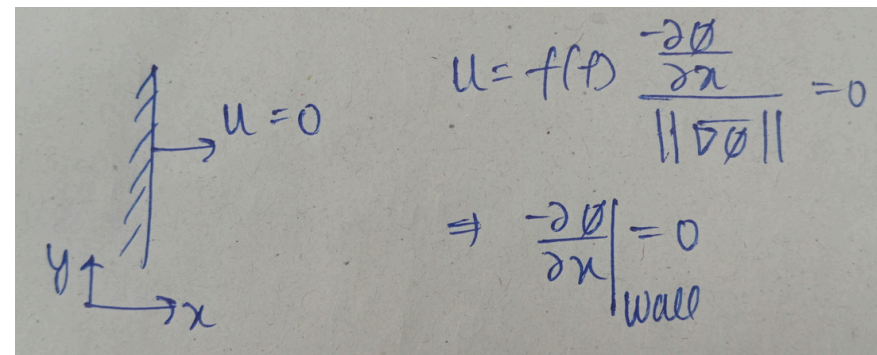 u = 0
y
x
u = f(ρ) (-∂φ/∂x) / ||∇φ|| = 0
⇒ -∂φ/∂x | wall = 0